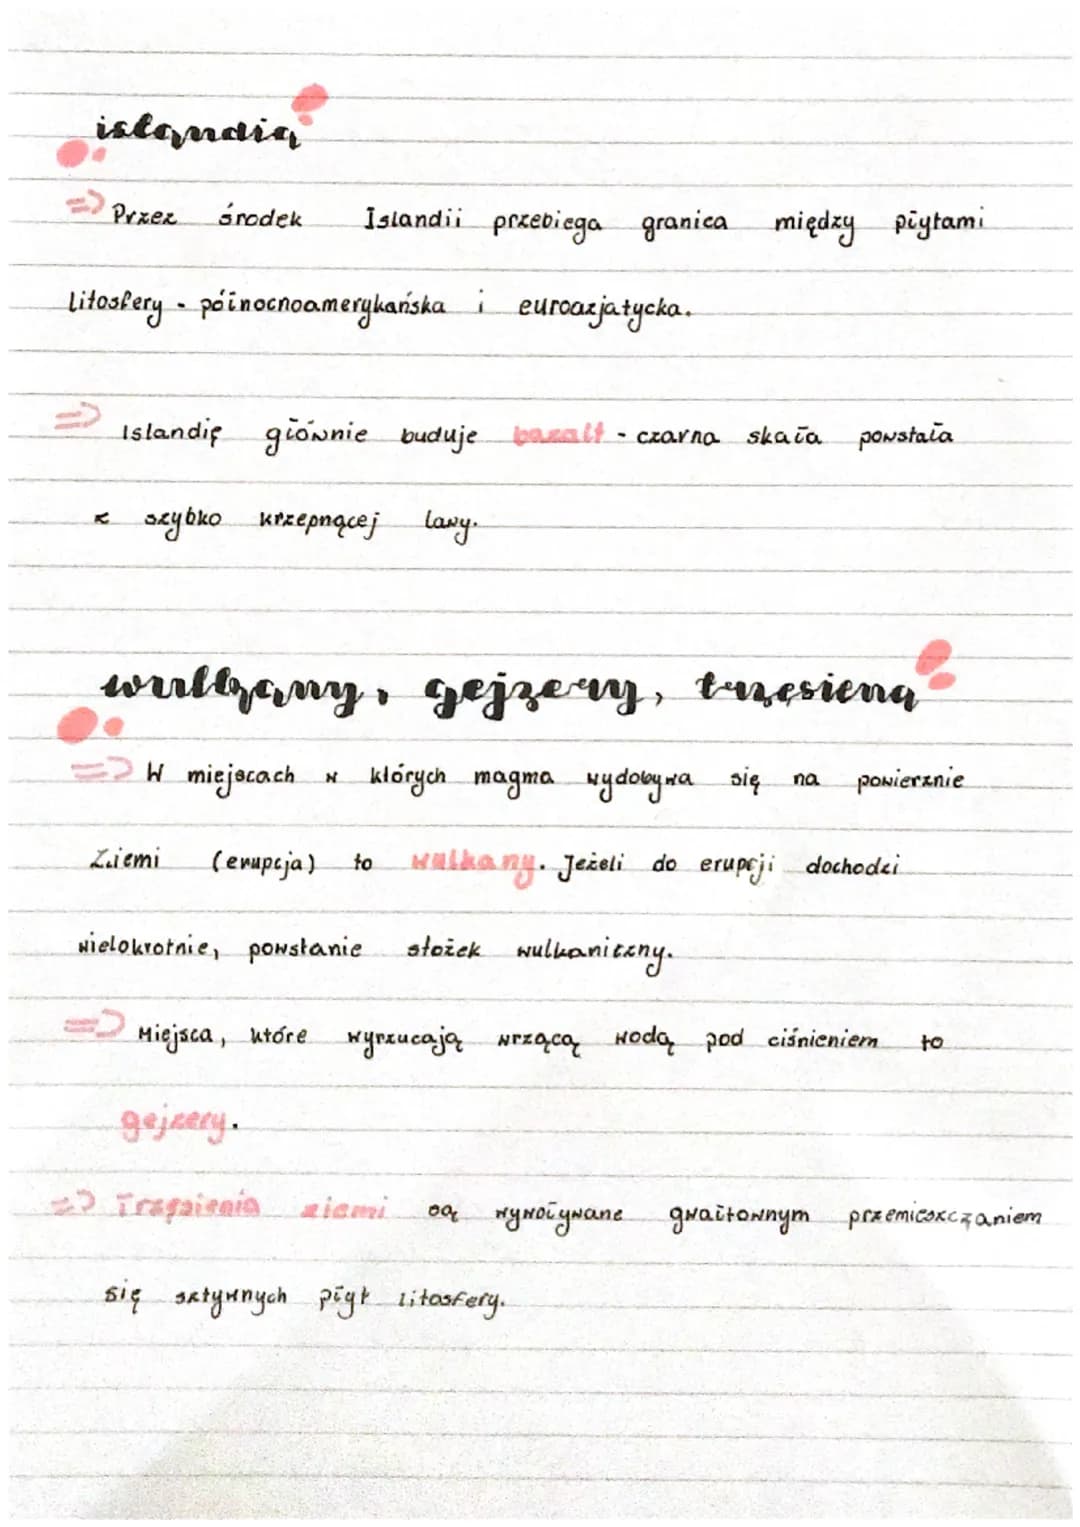 islandia
=> Przez środek Islandii przebiega granica między płytami
litosfery - północnoamerykańska i euroazjatycka.
=> Islandię głównie buduje bazalt - czarna skała powstała
z szybko krzepnącej lawy.
wulkany, gejzery, trzęsiena
=> W miejscach w których magma wydobywa się na powierznie
Ziemi (erupcja) to wulkany. Jeżeli do erupcji dochodzi
wielokrotnie, powstanie stożek wulkaniczny.
=> Miejsca, które wyrzucają wrzącą wodą pod ciśnieniem to
gejzery.
=> Trzęsienia ziemi są wywoływane gwałtownym przemieszczaniem
się sztywnych płyt litosfery.